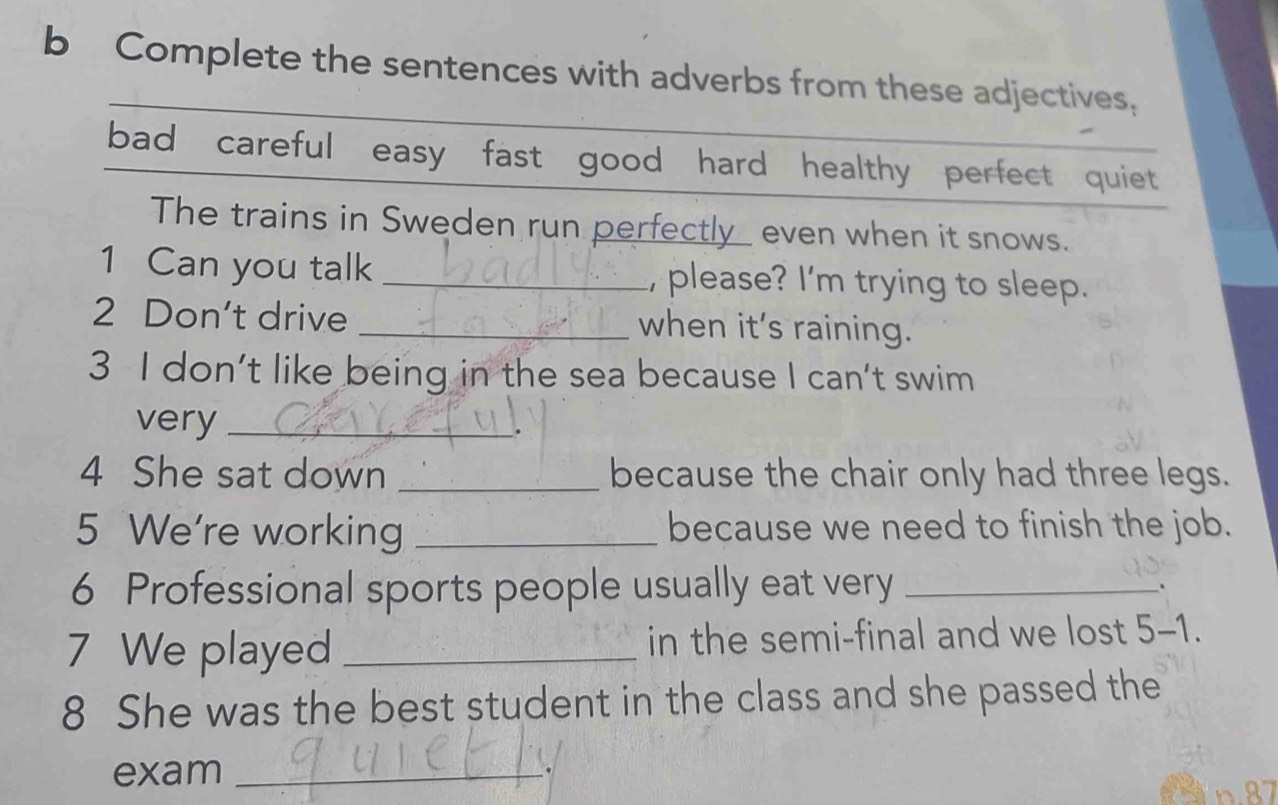 b Complete the sentences with adverbs from these adjectives.
bad careful easy fast good hard healthy perfect quiet
The trains in Sweden run perfectly even when it snows.
1 Can you talk badly, please? I'm trying to sleep.
2 Don't drive when it's raining.
3 I don't like being in the sea because I can't swim
very carefuly.
4 She sat down because the chair only had three legs.
5 We're working because we need to finish the job.
6 Professional sports people usually eat very .
7 We played in the semi-final and we lost 5–1.
8 She was the best student in the class and she passed the
exam quietly.
p.87